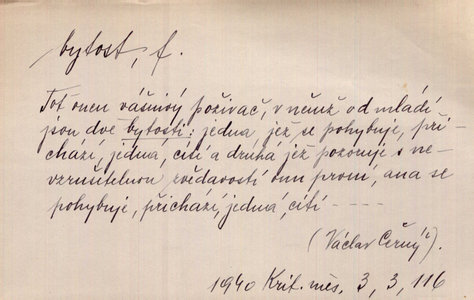 bytost, f.
Toť onen vášnivý poživač, v němž od mládí
jsou dvě bytosti: jedna, jež se pohybuje, při-
chází, jedná, cítí a druhá jež pozoruje s ne-
vzrušitelnou zvědavostí onu první, ana se
pohybuje, přichází, jedná, cítí - - - -
(Václav Černý).
1940 Krit. měs. 3, 3, 116